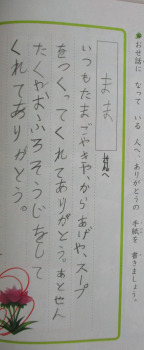 おせ話に なって いる 人へ ありがとうの 手紙を 書きましょう。
まま
へ
いつもたまごやきや、からあげや、スープ
をつくってくれてありがとう。あとせん
たくやおふろそうじをして
くれてありがとう。